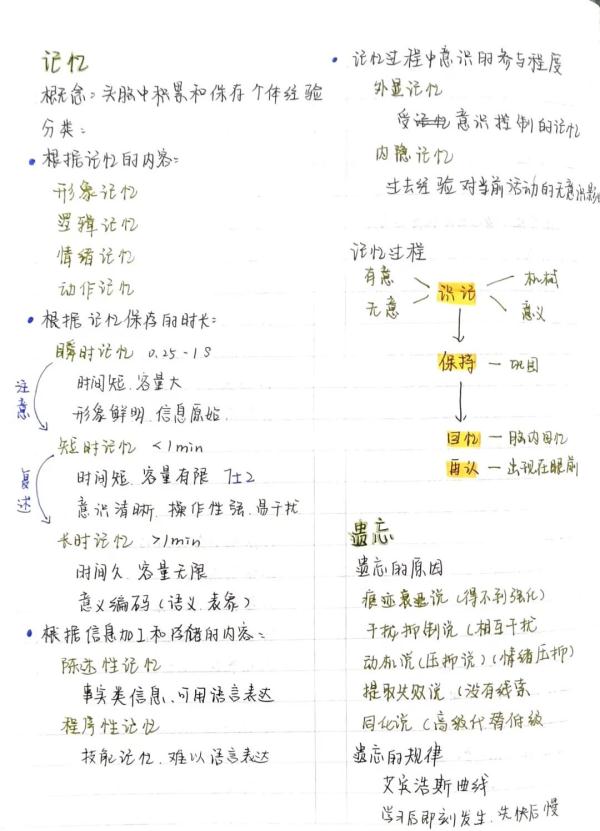 记忆
概念：头脑中积累和保存个体经验
分类：
• 根据记忆的内容：
形象记忆
逻辑记忆
情绪记忆
动作记忆
• 根据记忆保存的时长：
瞬时记忆 0.25-1s
时间短.容量大
形象鲜明.信息原始.
注意
短时记忆 <1min
时间短.容量有限 7±2
意识清晰.操作性强.易干扰
复述
长时记忆 >1min
时间久.容量无限
意义编码（语义.表象）
• 根据信息加工和存储的内容：
陈述性记忆
事实类信息.可用语言表达
程序性记忆
技能记忆.难以语言表达
• 记忆过程中意识的参与程度
外显记忆
受意识控制的记忆
内隐记忆
过去经验对当前活动的无意识影
记忆过程
有意 识记 机械
无意 意义
保持 — 巩固
回忆 — 脑内回忆
再认 — 出现在眼前
遗忘
遗忘的原因
痕迹衰退说（得不到强化）
干扰抑制说（相互干扰
动机说（压抑说）（情绪压抑）
提取失败说（没有线索
同化说（高级代替低级
遗忘的规律
艾宾浩斯曲线
学习后即刻发生.先快后慢